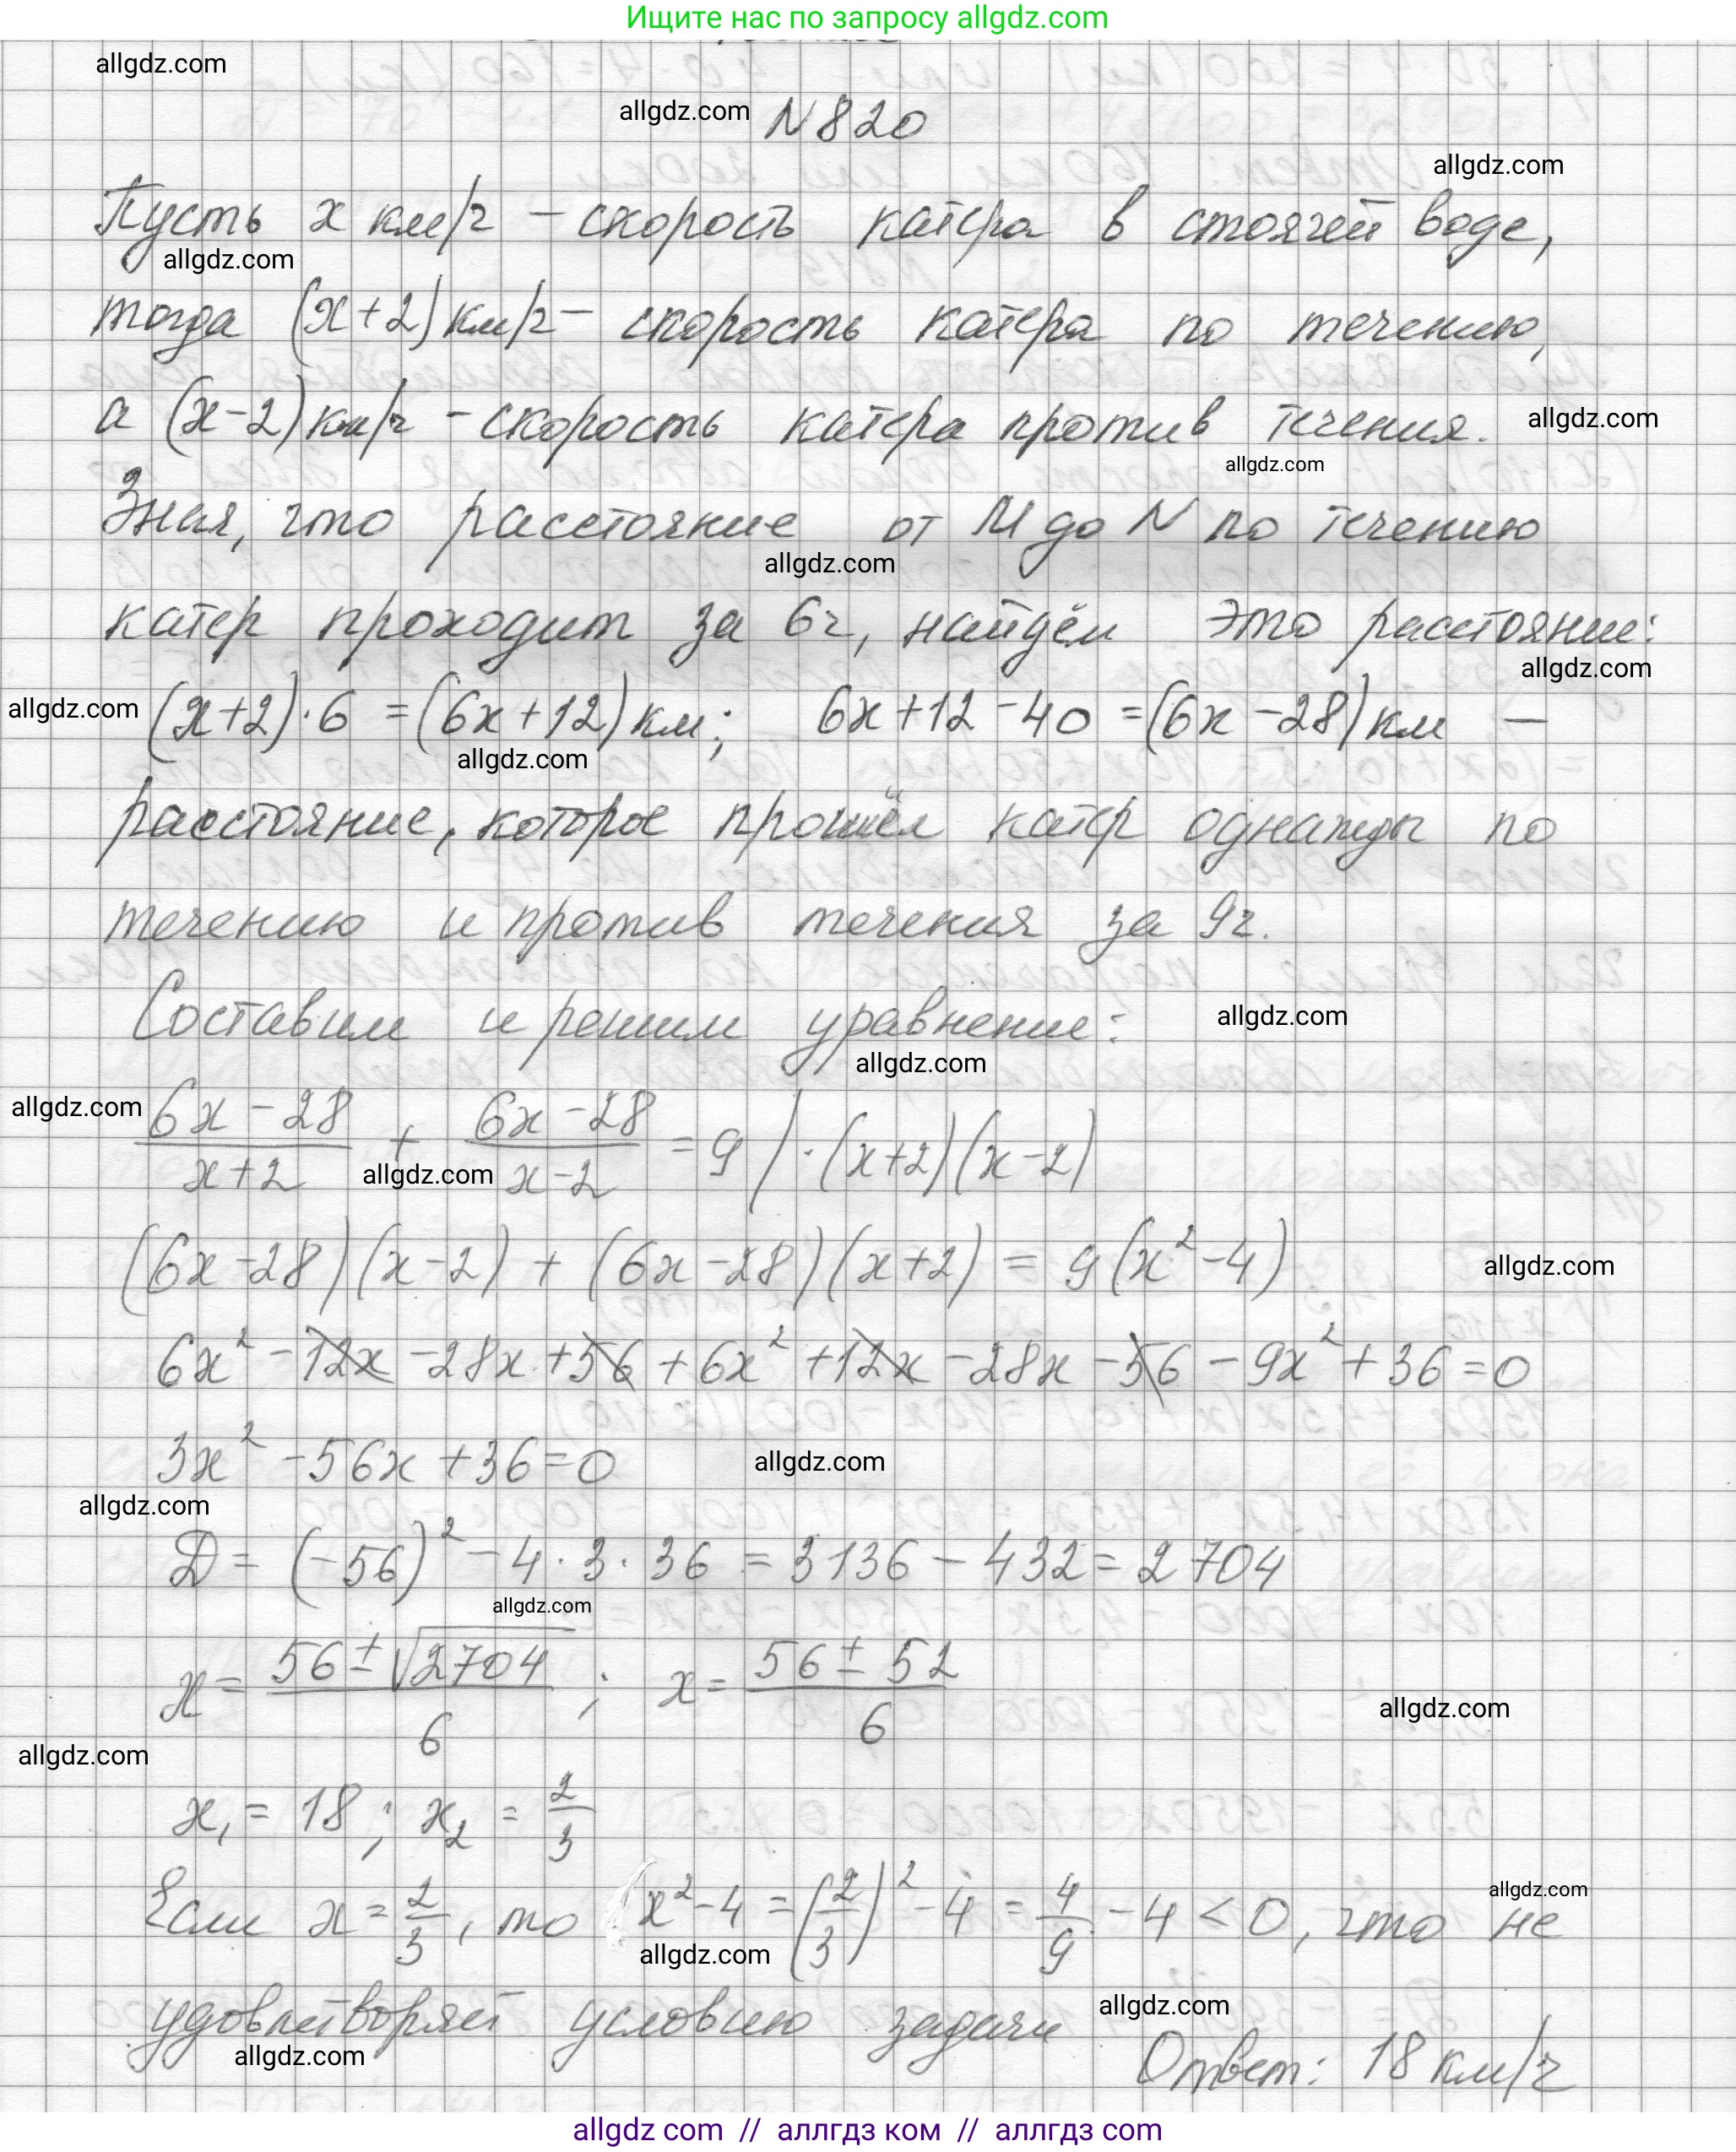 Ищите нас по запросу allgdz.com
allgdz.com
allgdz.com N820
allgdz.com
Пусть x км/ч – скорость катера в стоячей воде,
allgdz.com
тогда (x+2) км/ч – скорость катера по течению,
а (x-2) км/ч – скорость катера против течения. allgdz.com
allgdz.com
Зная, что расстояние от M до N по течению
allgdz.com
катер проходит за 6ч, найдём это расстояние:
allgdz.com
allgdz.com (x+2)·6 = (6x+12) км; 6x+12-40 = (6x-28) км –
allgdz.com
расстояние, которое прошёл катер однажды по
течению и против течения за 9ч.
Составим и решим уравнение: allgdz.com
allgdz.com
allgdz.com (6x-28)/(x+2) + (6x-28)/(x-2) = 9 / ·(x+2)(x-2)
allgdz.com
(6x-28)(x-2) + (6x-28)(x+2) = 9(x²-4) allgdz.com
6x² - 12x - 28x + 56 + 6x² + 12x - 28x - 56 - 9x² + 36 = 0
3x² - 56x + 36 = 0 allgdz.com
allgdz.com
D = (-56)² - 4·3·36 = 3136 - 432 = 2704
allgdz.com
x = (56 ± √2704)/6 ; x = (56 ± 52)/6
allgdz.com
allgdz.com
x₁ = 18 ; x₂ = 2/3
allgdz.com
Если x = 2/3, то x² - 4 = (2/3)² - 4 = 4/9 - 4 < 0, что не
allgdz.com
удовлетворяет условию задачи allgdz.com
allgdz.com
Ответ: 18 км/ч
allgdz.com // аллгдз ком // аллгдз com